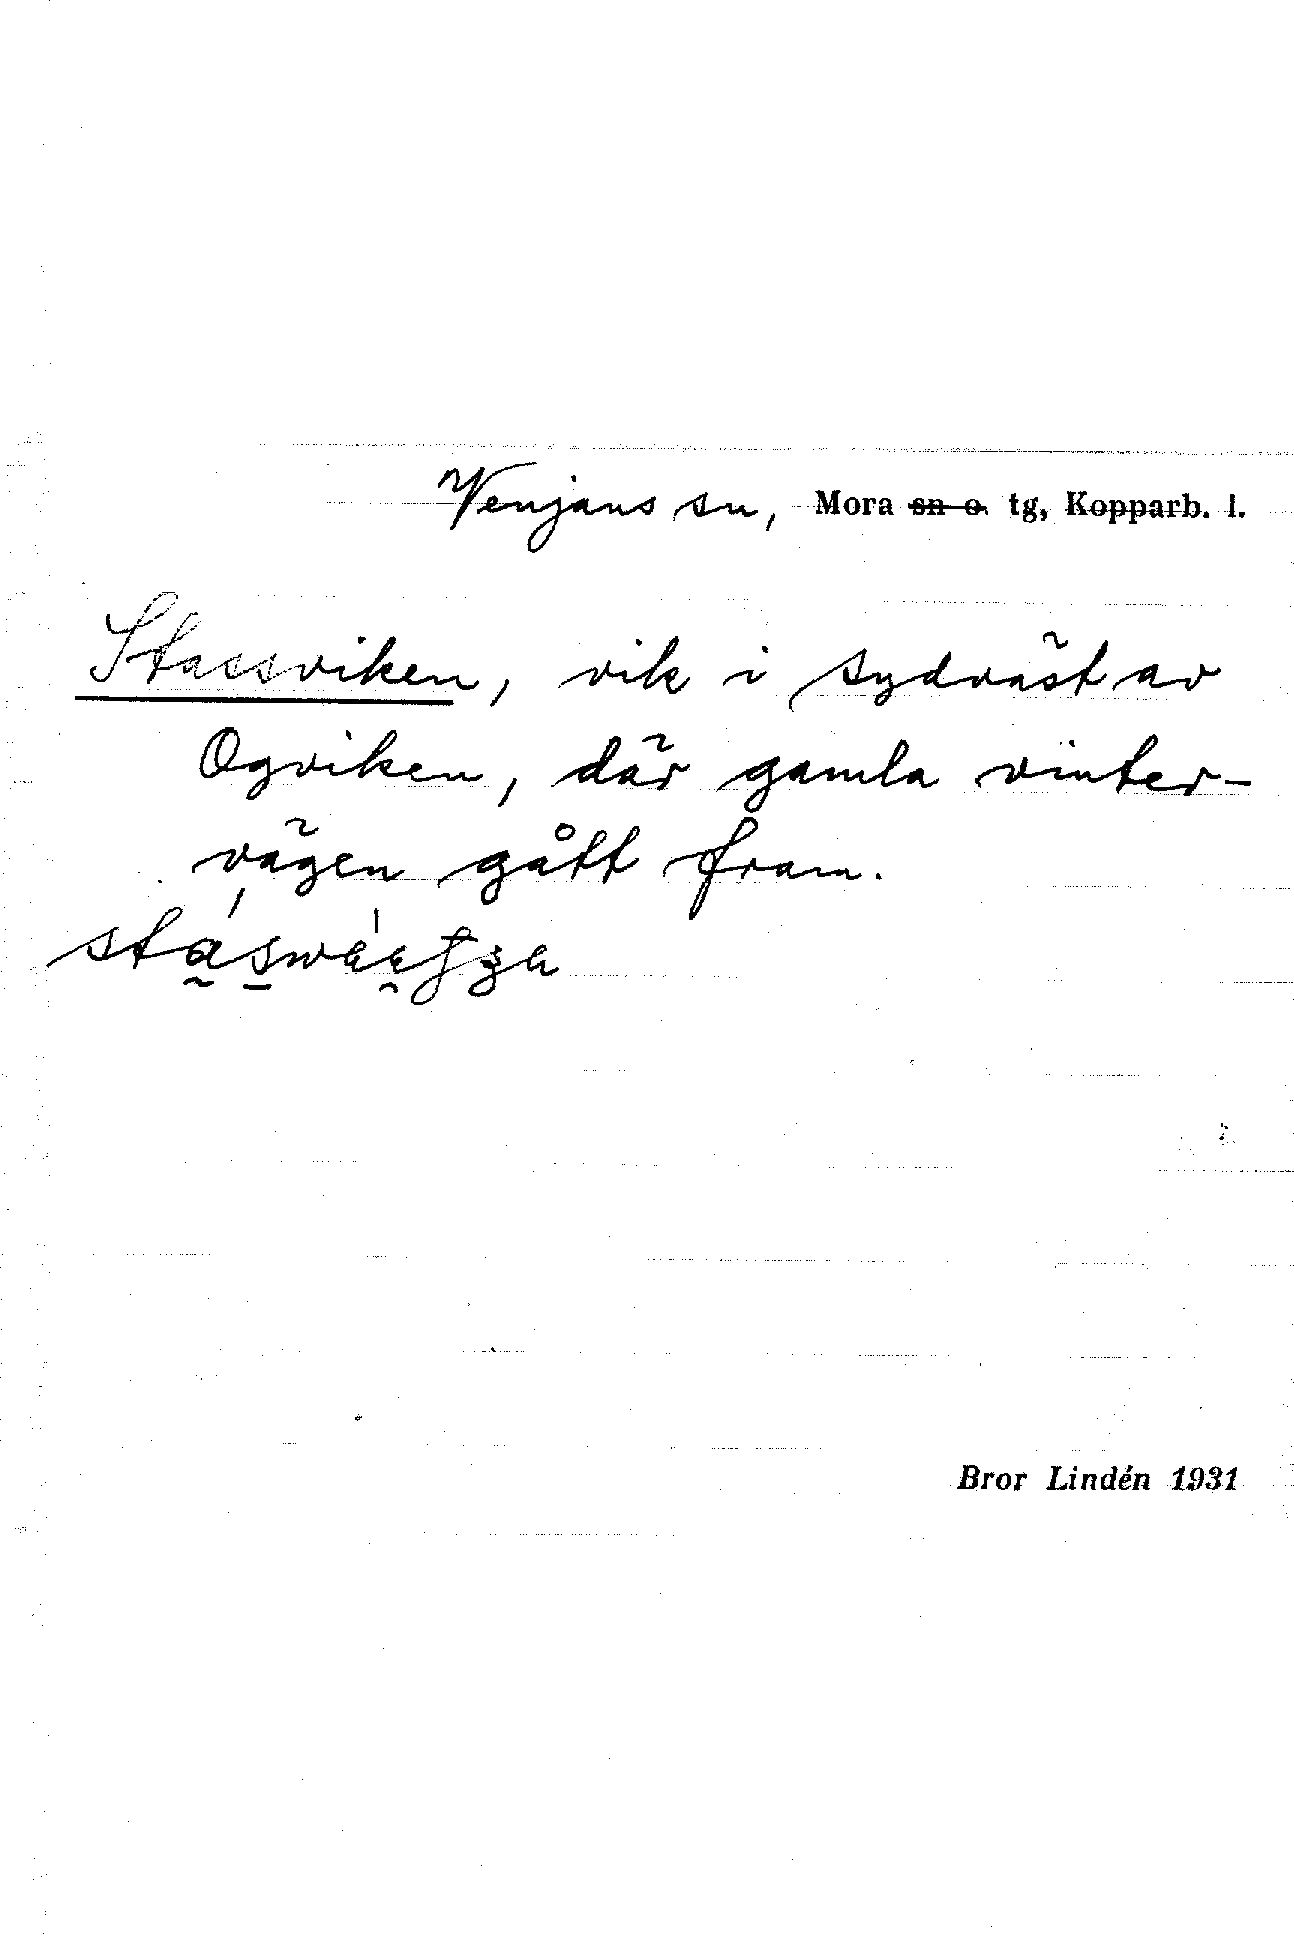 Venjans sn, Mora sn o. tg, Kopparb. l.
Stassviken, vik i sydväst av
Ogviken, där gamla vinter-
vägen gått fram.
Bror Lindén 1931